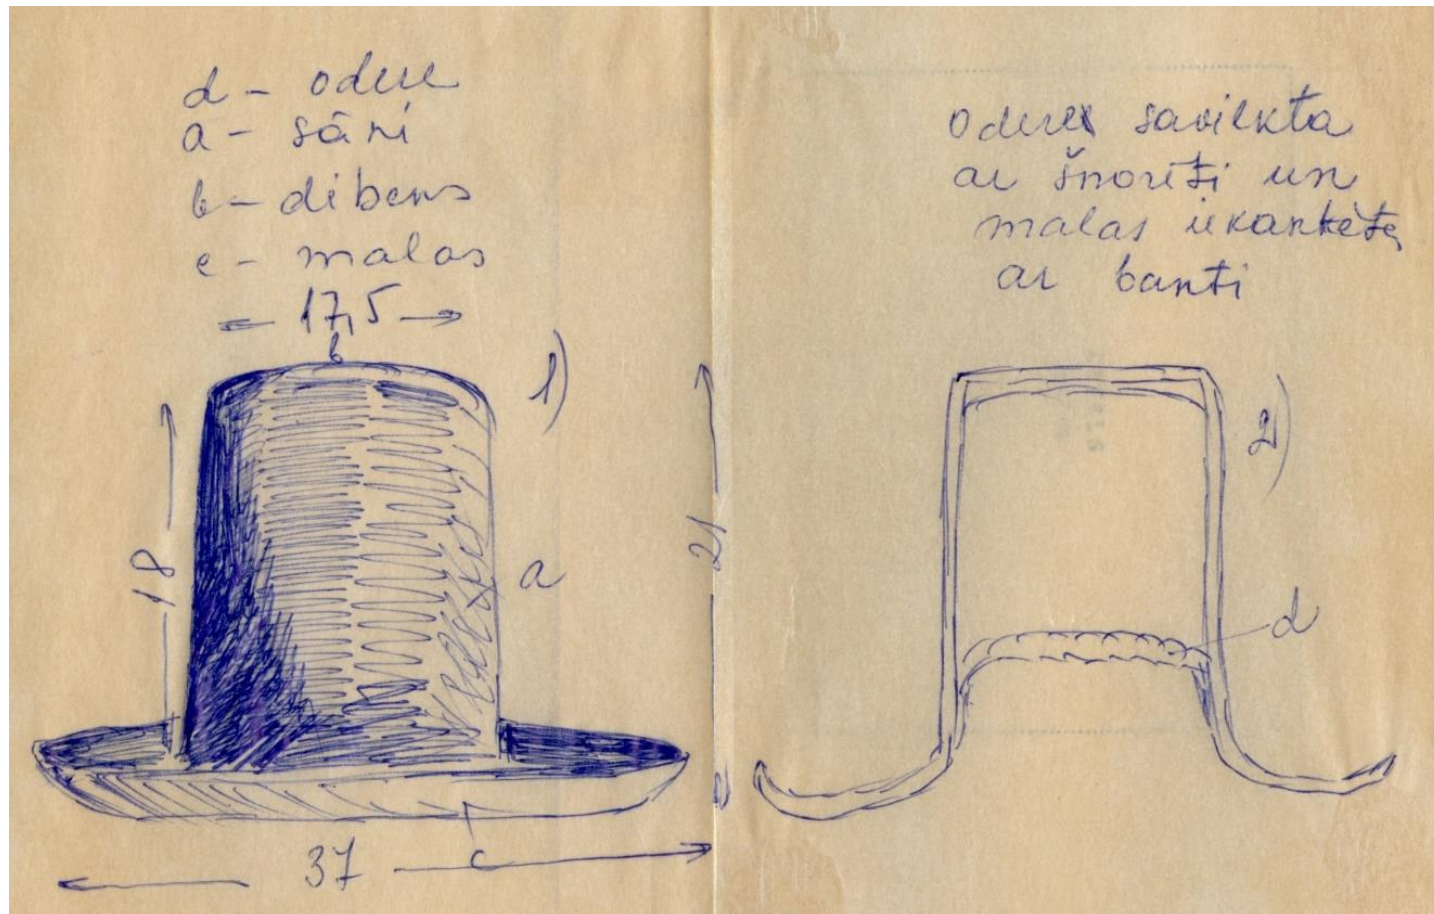 d - odere
a - sāni
b - dibens
c - malas
17,5
b
1)
18
a
21
37
c
odere savilkta
ar šnorīti un
malas iekantētas
ar banti
2)
d